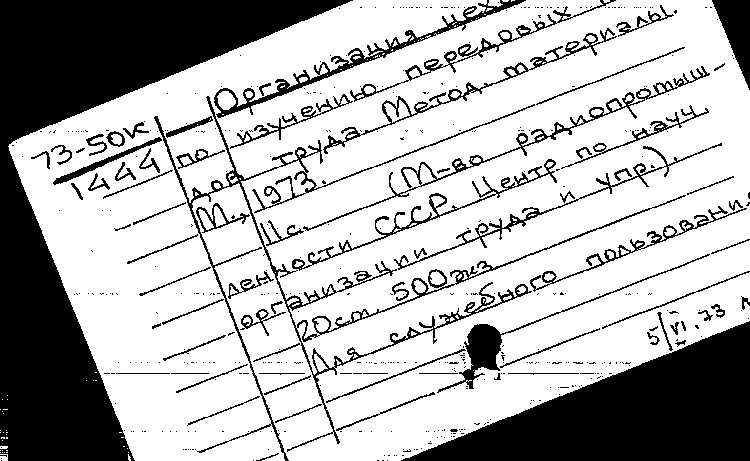 73-50К
1444
Организация
по изучению передовых
дов труда. Метод. материалы.
М., 1973.
11с. (М-во радиопромыш-
ленности СССР. Центр по науч.
организации труда и упр.).
20см. 500экз
Для служебного пользования
5/VI.73